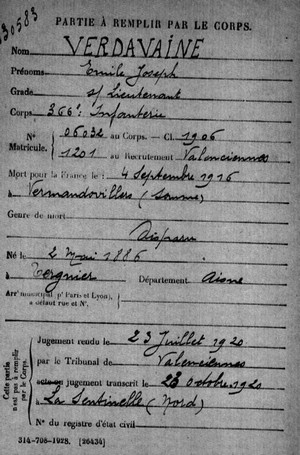 130583
PARTIE À REMPLIR PAR LE CORPS.
Nom VERDAVAINE
Prénoms Emile Joseph
Grade s/ Lieutenant
Corps 366e Infanterie
N° 06032 au Corps. — Cl. 1906
Matricule. 1201 au Recrutement Valenciennes
Mort pour la France le 4 Septembre 1916
à Vermandovillers (Somme)
Genre de mort
Disparu
Né le 2 Mai 1886
à Tergnier Département Aisne
Arr' municipal (p' Paris et Lyon),
à défaut rue et N°.
Cette partie n'est pas à remplir par le Corps.
Jugement rendu le 23 Juillet 1920
par le Tribunal de Valenciennes
acte ou jugement transcrit le 23 Octobre 1920
à La Sentinelle (Nord)
N° du registre d'état civil
514-708-1928. [26434]